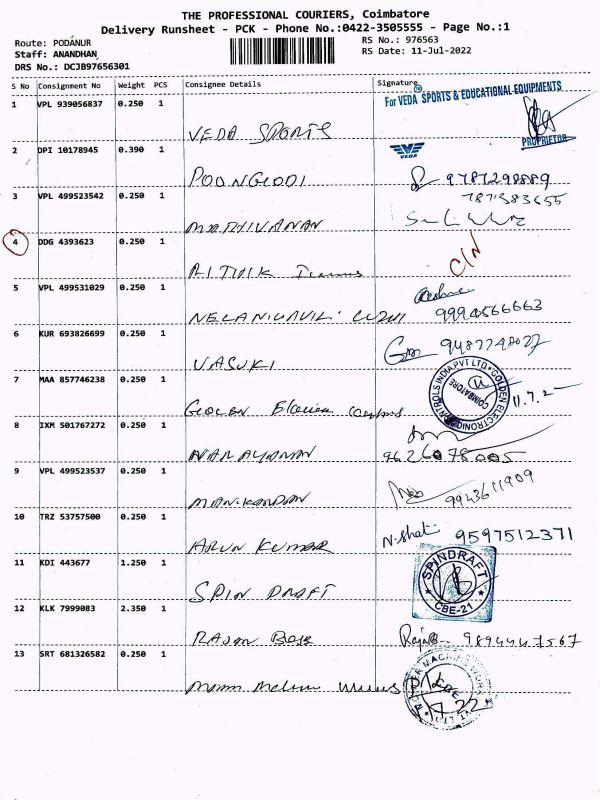 THE PROFESSIONAL COURIERS, Coimbatore
Delivery Runsheet - PCK - Phone No.:0422-3505555 - Page No.:1
Route: PODANUR
RS No.: 976563
Staff: ANANDHAN
RS Date: 11-Jul-2022
DRS No.: DCJB97656301
S No Consignment No Weight PCS Consignee Details Signature
1 VPL 939056837 0.250 1
For VEDA SPORTS & EDUCATIONAL EQUIPMENTS
VEDA SPORTS
PROPRIETOR
2 DPI 10178945 0.390 1
VEDA
POONGLODI 9787298889
3 VPL 499523542 0.250 1
7871383655
MATHIVANAN
4 DDG 4393623 0.250 1
C/N
RITHIK
5 VPL 499531029 0.250 1
9994566663
6 KUR 693826699 0.250 1
9487748027
VASUKI
7 MAA 857746238 0.250 1
GOLDEN ELECTRONIC CONTROLS INDIA PVT LTD
COIMBATORE
8 IXM 501767272 0.250 1
NARAYANAN 9626078005
9 VPL 499523537 0.250 1
MANIKANDAN 9943611909
10 TRZ 53757500 0.250 1
N.Shati 9597512371
ARUN KUMAR
11 KDI 443677 1.250 1
SPINDRAFT
CBE-21
SPIN DRAFT
12 KLK 7999083 2.350 1
RAJAN Bose 9894447567
13 SRT 681326582 0.250 1